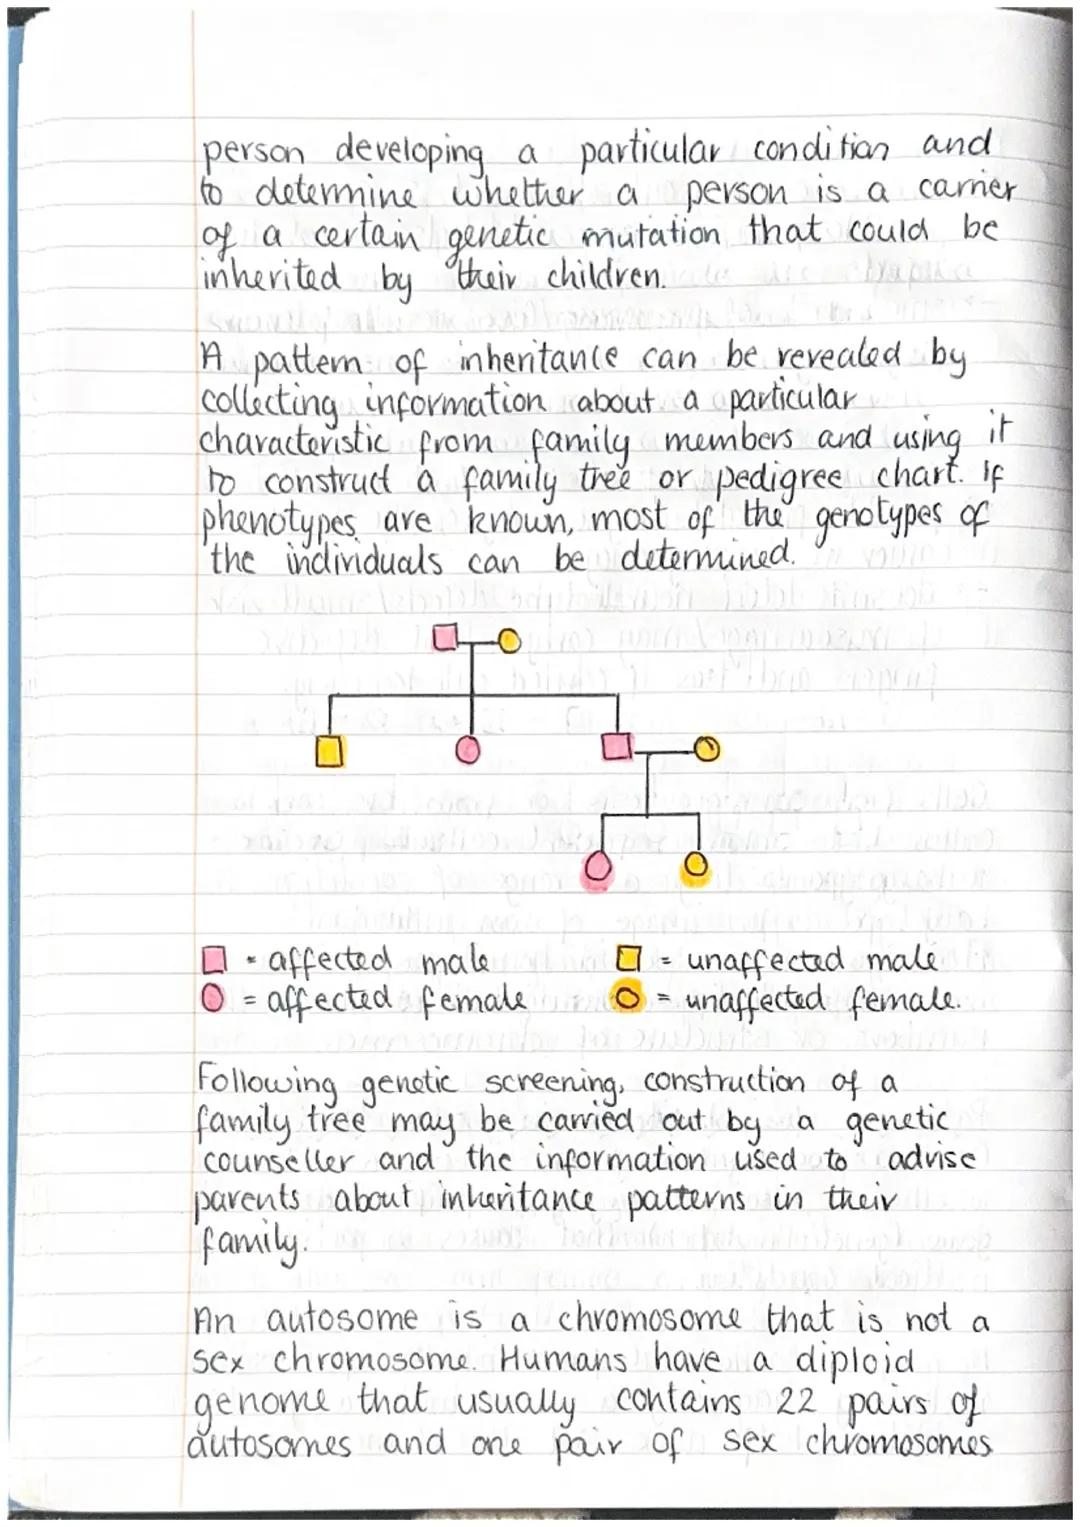 person developing a particular condition and
to determine whether a person is a carrier
of a certain genetic mutation that could be
inherited by their children.
A pattern of inheritance can be revealed by
collecting information about a particular
characteristic from family members and using it
to construct a family tree or pedigree chart. If
phenotypes are known, most of the genotypes of
the individuals can be determined.
= affected male
= unaffected male
= affected female
= unaffected female.
Following genetic screening, construction of a
family tree may be carried out by a genetic
counseller and the information used to advise
parents about inheritance patterns in their
family.
An autosome is a chromosome that is not a
sex chromosome. Humans have a diploid
genome that usually contains 22 pairs of
autosomes and one pair of sex chromosomes